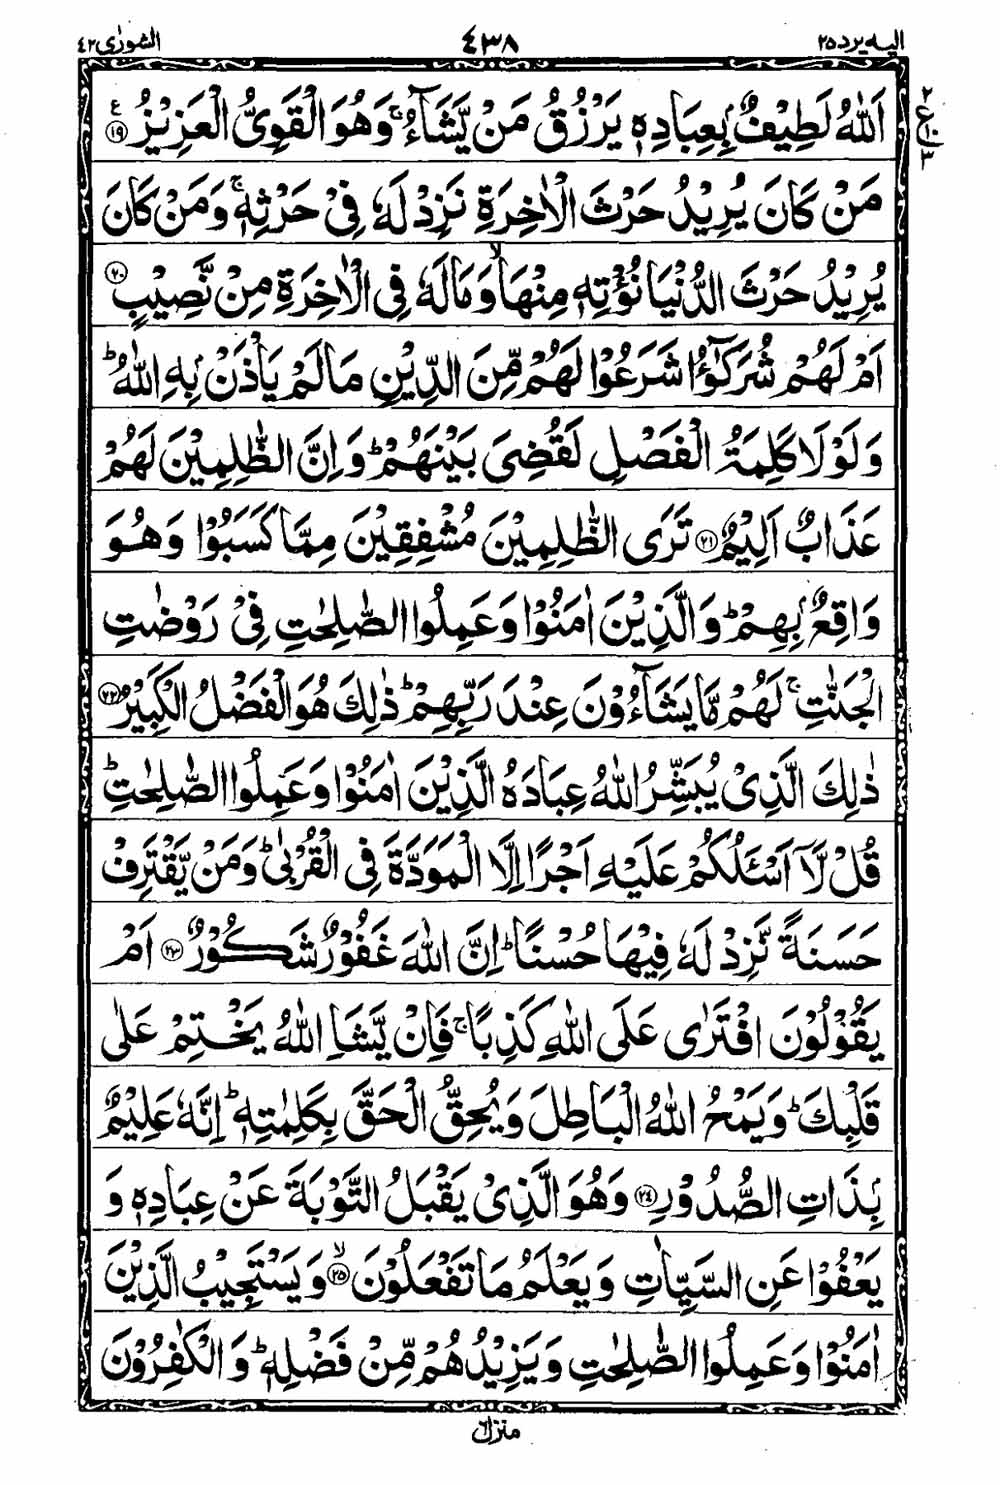 الیہ یرد ۲۵
۴۳۸
الشورٰی ۴۲
اَللّٰهُ لَطِيْفٌۢ بِعِبَادِهٖ يَرْزُقُ مَنْ يَّشَآءُ ۚ وَهُوَ الْقَوِيُّ الْعَزِيْزُ ۧ ۱۹
۲
ع
۱۰
۳
مَنْ كَانَ يُرِيْدُ حَرْثَ الْاٰخِرَةِ نَزِدْ لَهٗ فِيْ حَرْثِهٖ ۚ وَمَنْ كَانَ
يُرِيْدُ حَرْثَ الدُّنْيَا نُؤْتِهٖ مِنْهَا ۙ وَمَا لَهٗ فِي الْاٰخِرَةِ مِنْ نَّصِيْبٍ ۲۰
اَمْ لَهُمْ شُرَكٰٓؤُا شَرَعُوْا لَهُمْ مِّنَ الدِّيْنِ مَا لَمْ يَاْذَنْۢ بِهِ اللّٰهُ ؕ
وَلَوْلَا كَلِمَةُ الْفَصْلِ لَقُضِيَ بَيْنَهُمْ ؕ وَاِنَّ الظّٰلِمِيْنَ لَهُمْ
عَذَابٌ اَلِيْمٌ ۲۱ تَرَى الظّٰلِمِيْنَ مُشْفِقِيْنَ مِمَّا كَسَبُوْا وَهُوَ
وَاقِعٌۢ بِهِمْ ؕ وَالَّذِيْنَ اٰمَنُوْا وَعَمِلُوا الصّٰلِحٰتِ فِيْ رَوْضٰتِ
الْجَنّٰتِ ۚ لَهُمْ مَّا يَشَآءُوْنَ عِنْدَ رَبِّهِمْ ؕ ذٰلِكَ هُوَ الْفَضْلُ الْكَبِيْرُ ۲۲
ذٰلِكَ الَّذِيْ يُبَشِّرُ اللّٰهُ عِبَادَهُ الَّذِيْنَ اٰمَنُوْا وَعَمِلُوا الصّٰلِحٰتِ ؕ
قُلْ لَّآ اَسْـَٔلُكُمْ عَلَيْهِ اَجْرًا اِلَّا الْمَوَدَّةَ فِي الْقُرْبٰى ؕ وَمَنْ يَّقْتَرِفْ
حَسَنَةً نَّزِدْ لَهٗ فِيْهَا حُسْنًا ؕ اِنَّ اللّٰهَ غَفُوْرٌ شَكُوْرٌ ۲۳ اَمْ
يَقُوْلُوْنَ افْتَرٰى عَلَى اللّٰهِ كَذِبًا ۚ فَاِنْ يَّشَاِ اللّٰهُ يَخْتِمْ عَلٰى
قَلْبِكَ ؕ وَيَمْحُ اللّٰهُ الْبَاطِلَ وَيُحِقُّ الْحَقَّ بِكَلِمٰتِهٖ ؕ اِنَّهٗ عَلِيْمٌۢ
بِذَاتِ الصُّدُوْرِ ۲۴ وَهُوَ الَّذِيْ يَقْبَلُ التَّوْبَةَ عَنْ عِبَادِهٖ وَ
يَعْفُوْا عَنِ السَّيِّاٰتِ وَيَعْلَمُ مَا تَفْعَلُوْنَ ۙ ۲۵ وَيَسْتَجِيْبُ الَّذِيْنَ
اٰمَنُوْا وَعَمِلُوا الصّٰلِحٰتِ وَيَزِيْدُهُمْ مِّنْ فَضْلِهٖ ؕ وَالْكٰفِرُوْنَ
منزل ۶